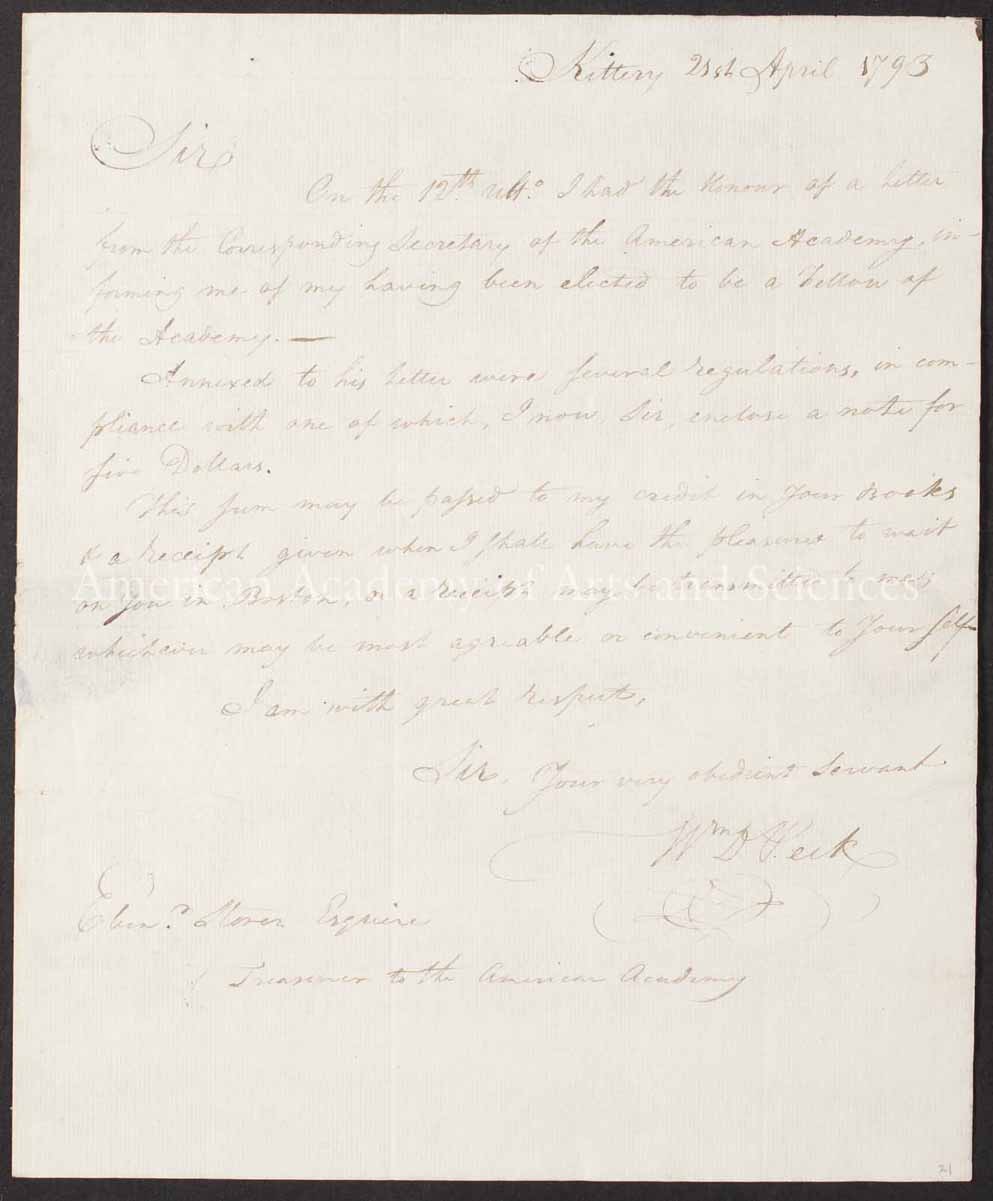 Kittery 21st April 1793
Sir
On the 12th. ulto. I had the Honour of a Letter
from the Corresponding Secretary of the American Academy, in-
forming me of my having been elected to be a Fellow of
the Academy. —
Annexed to his Letter were several regulations, in com-
pliance with one of which, I now, Sir, enclose a note for
five Dollars.
This sum may be passed to my credit in your Books
& a receipt given when I shall have the pleasure to wait
on you in Boston, or a receipt may be transmitted to me;
whichever may be most agreable or convenient to Your self
I am with great respect,
Sir, Your very obedient Servant
Wm D Peck
Ebenr. Storer Esquire
Treasurer to the American Academy
American Academy of Arts and Sciences
21